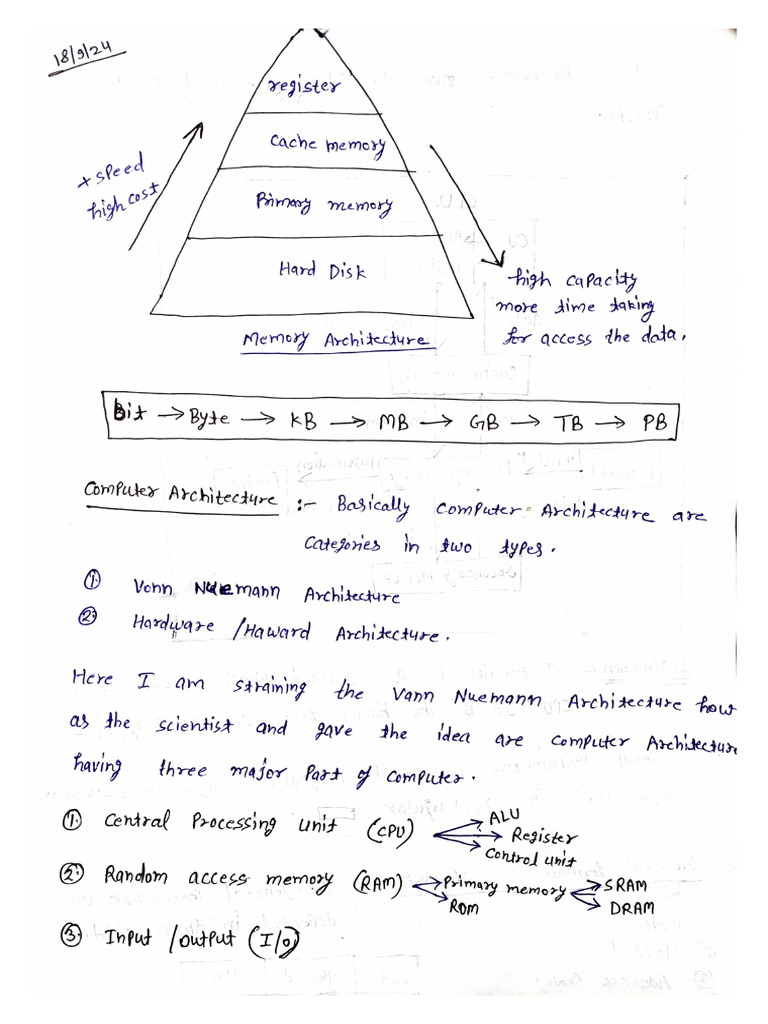 18/9/24
register
Cache memory
Primary memory
Hard Disk
+ speed
high cost
high capacity
more time taking
for access the data.
Memory Architecture
Bit → Byte → KB → MB → GB → TB → PB
Computer Architecture :- Basically Computer Architecture are
Categories in two types.
① Vonn Nuemann Architecture
② Hardware /Haward Architecture.
Here I am straining the Vann Nuemann Architecture how
as the scientist and gave the idea are computer Architecture
having three major Part of computer.
① Central Processing unit (CPU)
ALU
Register
Control unit
② Random access memory (RAM)
Primary memory
ROM
SRAM
DRAM
③ Input /output (I/O)